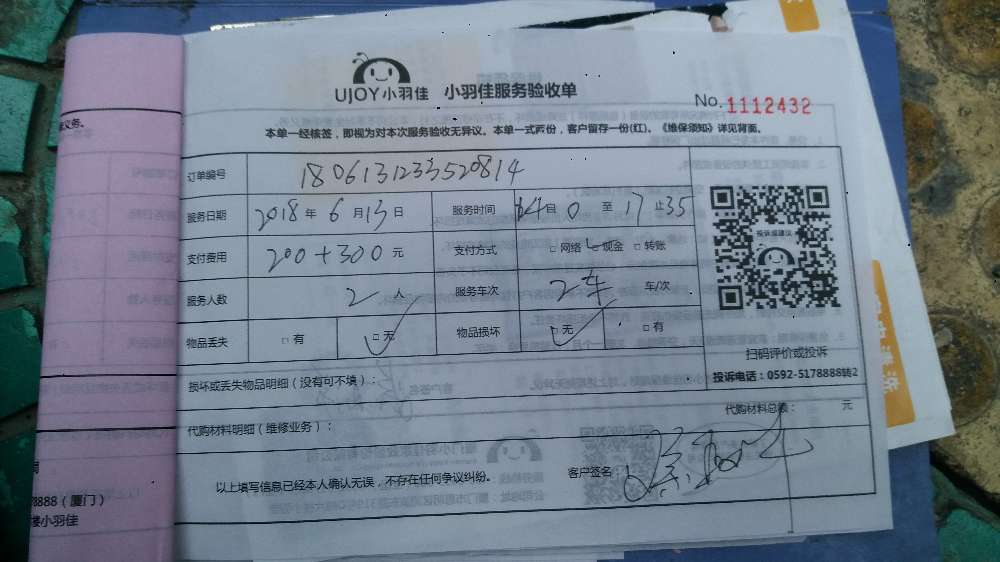 UJOY小羽佳 小羽佳服务验收单
No. 1112432
本单一经核签，即视为对本次服务验收无异议。本单一式两份，客户留存一份(红)。《维保须知》详见背面。
订单编号 180613123520814
服务日期 2018年6月13日 服务时间 14自0至17止35
支付费用 200+300元 支付方式 □网络 □现金 □转账
服务人数 2人 服务车次 2车 车/次
物品丢失 □有 □无 物品损坏 □无 □有
投诉或建议
扫码评价或投诉
投诉电话：0592-5178888转2
损坏或丢失物品明细（没有可不填）：
代购材料明细（维修业务）： 代购材料总额： 元
以上填写信息已经本人确认无误，不存在任何争议纠纷。 客户签名：
义务。
8888（厦门）
楼小羽佳